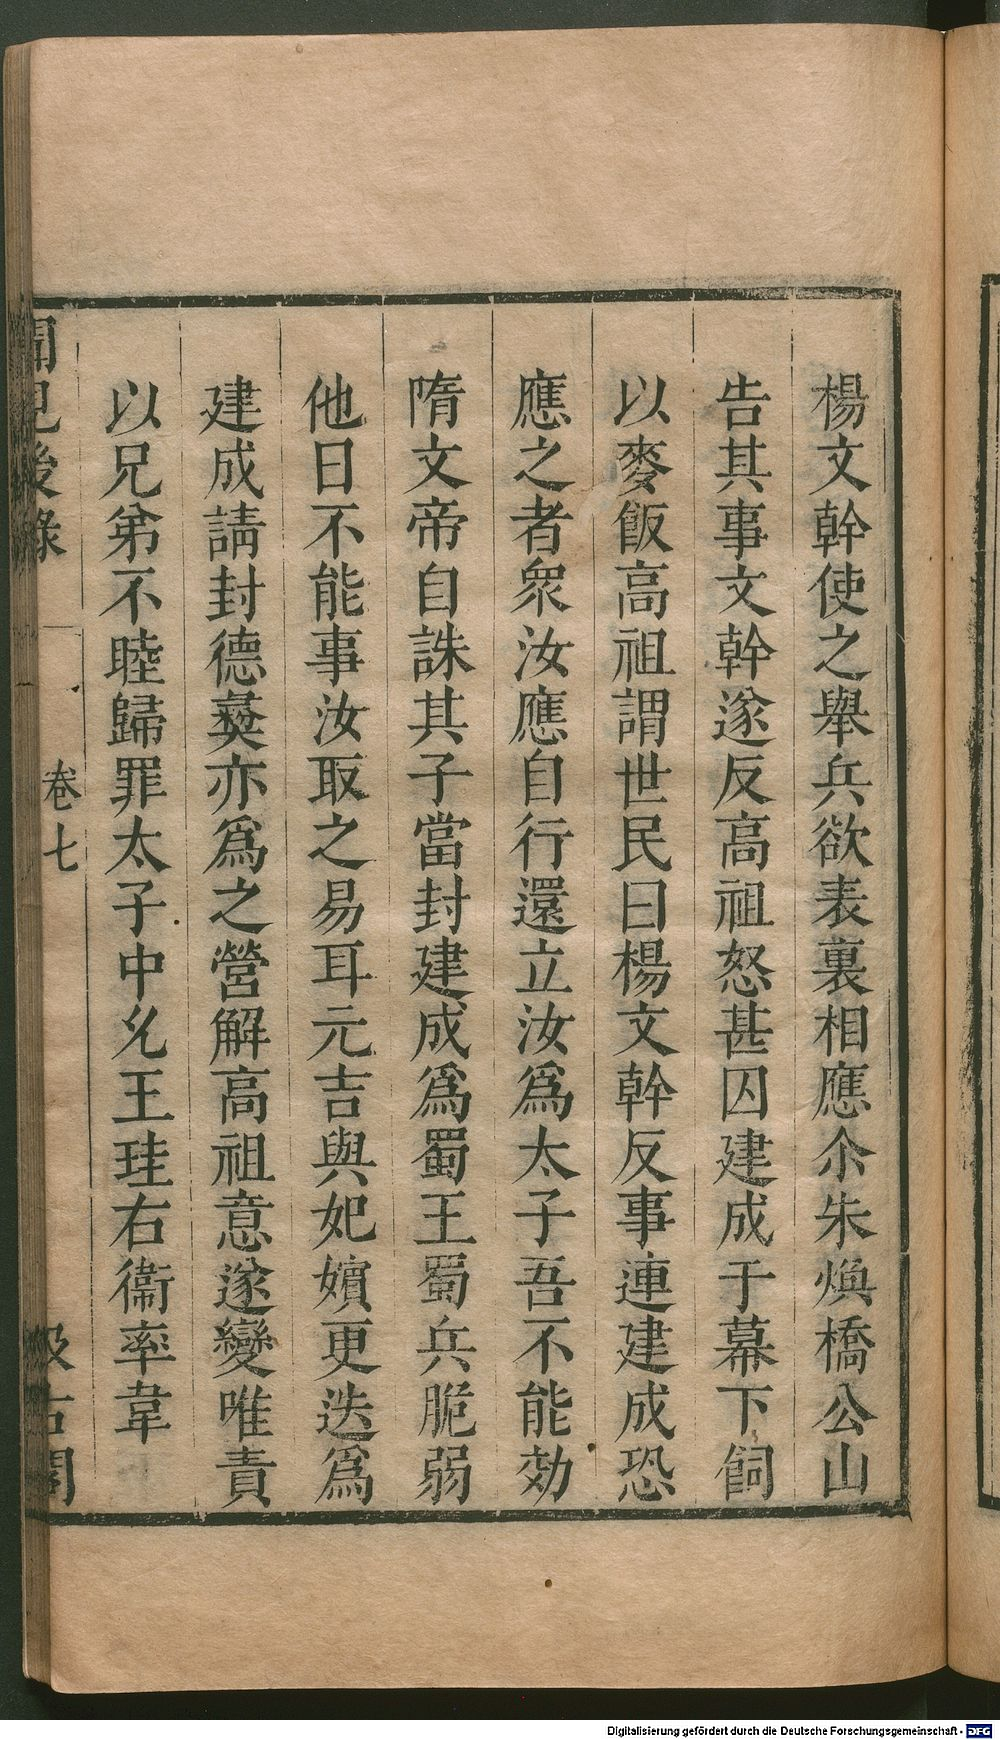 楊文幹使之舉兵欲表裏相應尒朱煥橋公山
告其事文幹遂反高祖怒甚囚建成于幕下飼
以麥飯高祖謂世民曰楊文幹反事連建成恐
應之者衆汝應自行還立汝爲太子吾不能効
隋文帝自誅其子當封建成爲蜀王蜀兵脆弱
他日不能事汝取之易耳元吉與妃嬪更迭爲
建成請封德彝亦爲之營解高祖意遂變唯責
以兄弟不睦歸罪太子中允王珪右衞率韋
聞見後錄
卷七
汲古閣
Digitalisierung gefördert durch die Deutsche Forschungsgemeinschaft - DFG